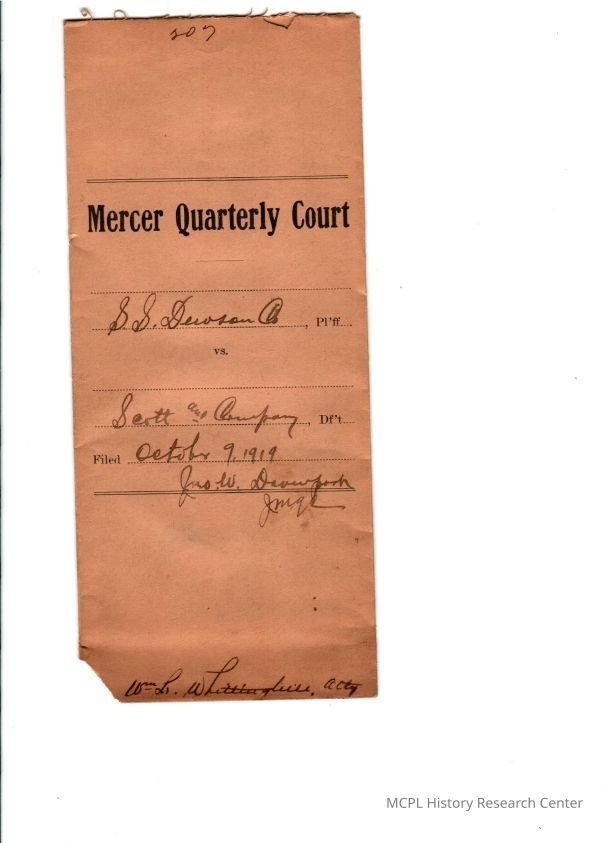 207
Mercer Quarterly Court
S. S. Dewson Co, Pl'ff.
vs.
Scott and Company, Df't
Filed October 9, 1919
Jno. W. Davenport
JMQC
Wm L. Whittinghill, Atty
MCPL History Research Center